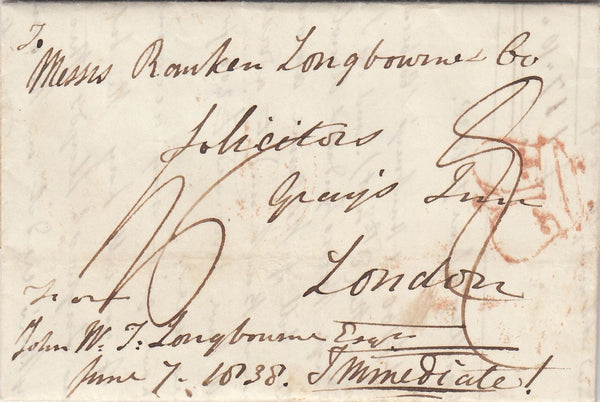 To
Messrs Ranken Longbourne & Co
Solicitors
Grays Inn
London
From
John W. T. Longbourne Esqr
June 7. 1838. Immediate!